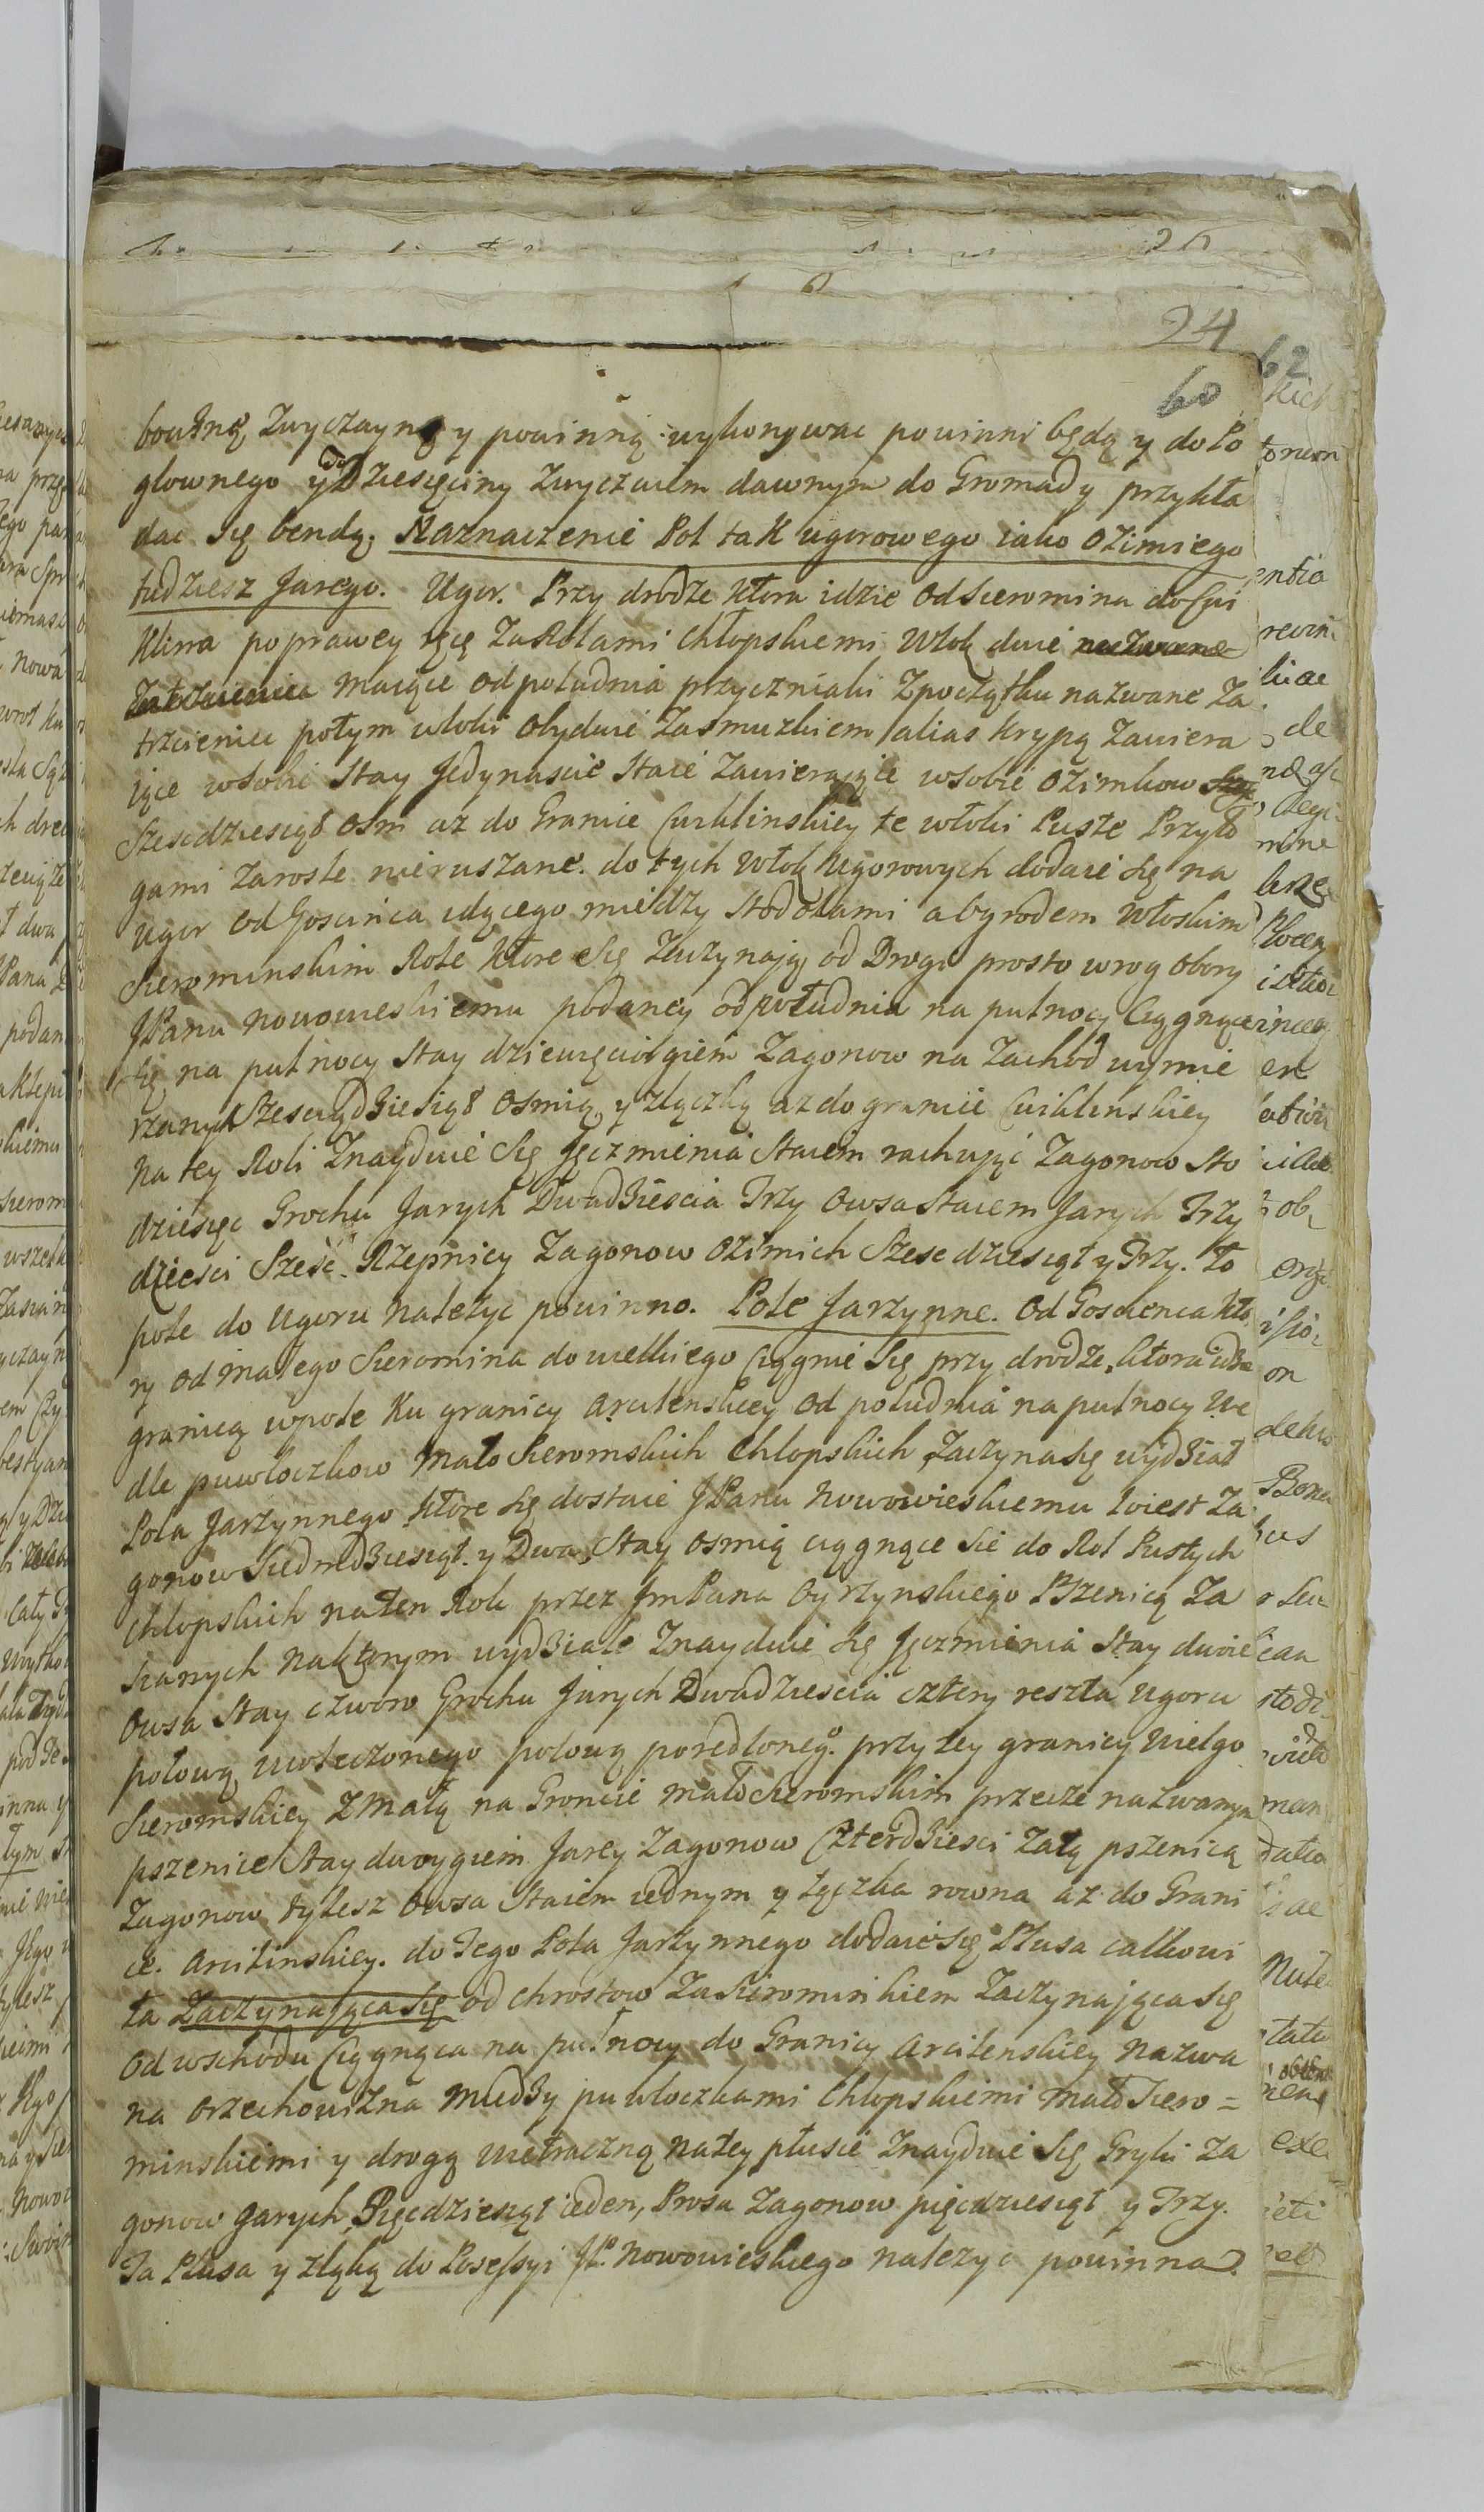 24
60
bowżnę zwyczayną y powinną wykonywac powinni będą y do Po
głownego y do Dziesięciny zwyczaiem dawnym do Gromady przykła
dac się bendą. Naznaczenie Pol tak ugorowego iako ozimiego
tudziesz Jarego. Ugor. Przy drodze ktora idzie od Sieromina do Cwi
klina po prawey ręcę za Rolami chłopskiemi Włok dwie
maiące od południa przyczniaki z początku nazwane Za
trzcienice potym włoki obydwie za smuzkiem /alias krypą zawiera
iące w sobie Stay Jedynascie Staie zawieraiące w sobie ozimkow
Szescdziesiąt osm az do Granice Cwiklinskiey te włoki Puste Przyło
gami zarosłe nieruszane. do tych włok ugorowych dodaie się na
ugor od Goscińca idącego między stodołami a bgrodem Włoskim
Sierominskim Role ktore się zaczynaią od Drogi prosto w rog obory
JPanu Nowowieskiemu podaney od południa na pułnocy Ciągnące
się na pułnocy Stay dziewięciorgiem Zagonow na Zachod wymie
rzanych Szesciądziesiąt osmią y złączką az do granice Cwiklinskiey
na tey Roli Znayduie się Jęczmienia Staiem rachuiąc Zagonow sto
dziesięc Grochu Jarych Dwadziescia Trzy owsa Staiem Jarych Trzy
dziesci Szesc. Rzepnicy Zagonow ozimich Szescdziesiąt y Trzy. to
pole do Ugoru należyc powinno. Pole Jarzynne. od Goscienca kto
ry od małego Sieromina do wielkiego Ciągnie się przy drodze, ktora idzie
granicą w pole ku granicy arcilenskiey od południa na pułnocy We
dle puwłoczkow Mało Sieromskich Chłopskich, zaczyna się wydział
Pola Jarzynnego ktore się dostaie JPanu Nowowieskiemu to iest Za
gonow Siedmdziesiąt y Dwa, Stay osmią ciągnące sie do Rol Pustych
chłopskich na ten Rok przez JmPana Pszenicą Za
sianych na ktorym wydziale Znayduie się Jęczmienia Stay dwoie
Owsa Stay czworo Grochu Jarych Dwadziescia cztery reszta Ugoru
połową uwleczonego połową poredloneg.o przy tey granicy Wielgo
Sieromskiey z Małą na Groncie mało Sieromskim przecze nazwanym
pszenice Stay dwoygiem Jarey Zagonow Czterdziesci Zatą pszenicą
Zagonow tylesz owsa Staiem iednym y łączka rowna az do Grani
ce. Arcilinskiey. do Tego Pola Jarzynnego dodaie się Płusa całkowi
ta Zaczynaiąca się od chrostow za Sierominkiem Zaczynaiąca się
od wschodu Ciągnąca na pułnocy do Granicy arcilenskiey Nazwa
na orzechowizna Miedzy puwłoczkami Chłopskiemi Mało Siero=
minskiemi y drogą Wietraczną na tey płusie Znayduie się Gryki Za
gonow Jarych, Pięcdziesiąt ieden, Prosa Zagonow pięcdziesiąt y Trzy.
Ta Płusa y złąką do Possessyi JP. Nowowieskiego nalezyc powinna.